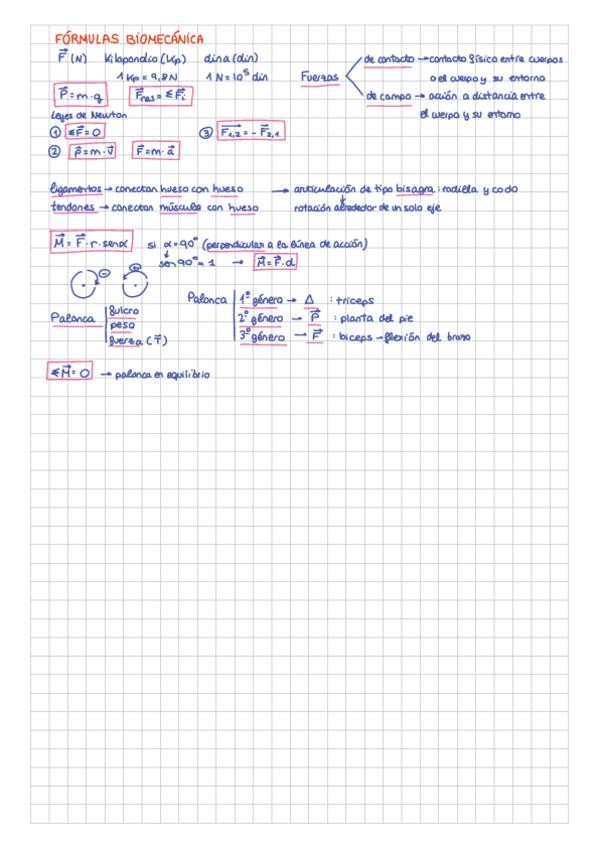 FÓRMULAS BIOMECÁNICA
F⃗ (N) Kilopondio (Kp) dina (din)
1 Kp = 9,8 N 1 N = 10⁵ din
Fuerzas
de contacto → contacto físico entre cuerpos
o el cuerpo y su entorno
de campo → acción a distancia entre
el cuerpo y su entorno
P⃗ = m · g F⃗res = Σ F⃗i
Leyes de Newton
① ΣF⃗ = 0 ③ F⃗1,2 = - F⃗2,1
② p⃗ = m · v⃗ F⃗ = m · a⃗
ligamentos → conectan hueso con hueso → articulación de tipo bisagra : rodilla y codo
tendones → conectan músculo con hueso rotación alrededor de un solo eje
M⃗ = F⃗ · r · senα si α = 90° (perpendicular a la línea de acción)
sen 90° = 1 → M⃗ = F⃗ · d
- +
Palanca
fulcro
peso
fuerza (T⃗)
Palanca
1º género → Δ : tríceps
2º género → P⃗ : planta del pie
3º género → F⃗ : bíceps - flexión del brazo
ΣM⃗ = 0 → palanca en equilibrio